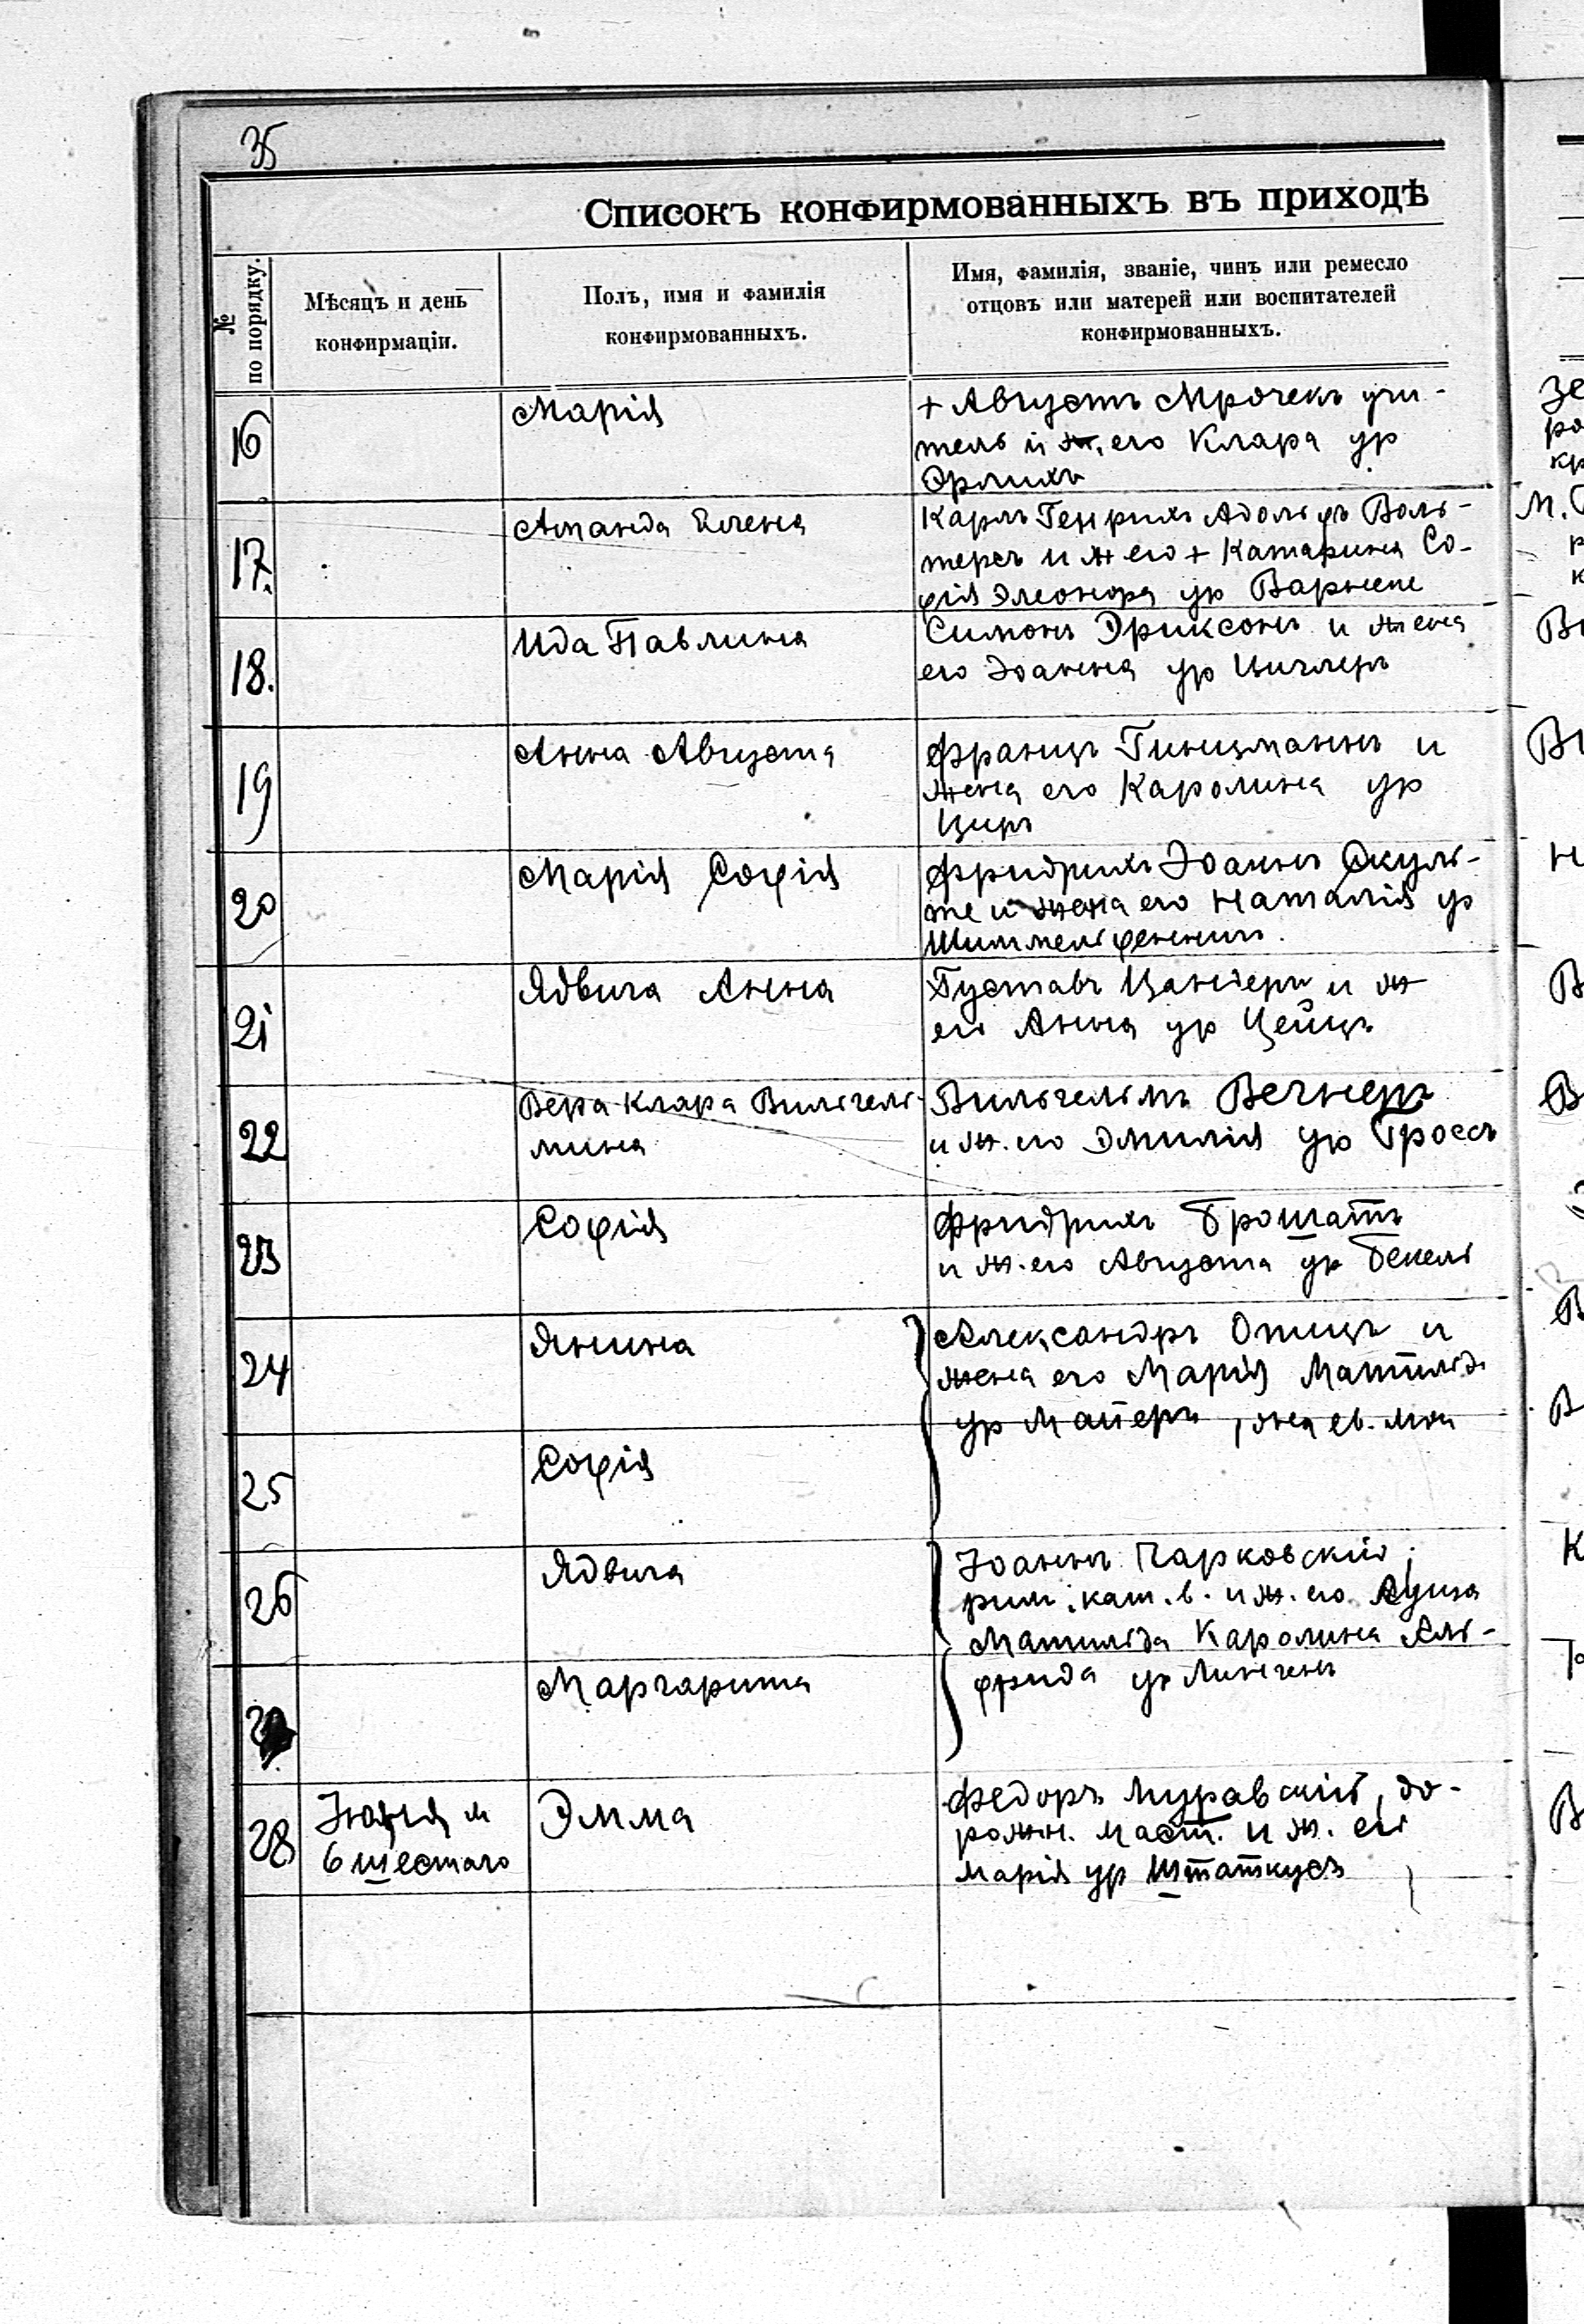 35
Списокъ конфирмованныхъ въ приходѣ
№ по порядку.
Мѣсяцъ и день
конфирмаціи.
Полъ, имя и фамилія
конфирмованныхъ.
Имя, фамилія, званіе, чинъ или ремесло
отцовъ или матерей или воспитателей
конфирмованныхъ.
16
Марія
+ Августъ Мрочекъ учи-
тель и ж. его Клара ур
Эрлихъ
17.
Аманда Елена
Карлъ Генрихъ Адольфъ Воль-
терсъ и ж его + Катарина Со-
фія Элеонора ур Варнеке
18.
Ида Павлина
Симонъ Эриксонъ и жена
его Іоанна ур Циглеръ
19
Анна Августа
Францъ Гинцманнъ и
жена его Каролина ур
Циръ
20
Марія Софія
Фридрихъ Іоаннъ Шкуль-
те и жена его Наталія ур
Шиммельфеннигъ.
21
Ядвига Анна
Густавъ Цандеръ и ж
его Анна ур Цейцъ
22
Вера Клара Вильгель-
мина
Вильгельмъ Вегнеръ
и ж. его Эмилія ур Гроссъ
23
Софія
Фридрихъ Брошатъ
и ж. его Августа ур Бекель
24
Янина
Александръ Опицъ и
жена его Марія Матильд.
ур Маперъ, она ев. лют
25
Софія
26
Ядвига
Іоаннъ Чарковскій;
рим. кат. в. и ж. его Луиза
Матильда Каролина Аль-
фрида ур Линденъ
27
Маргарита
28
Іюня м
6 шестаго
Эмма
Федоръ Муравскій, до-
рожн. маст. и ж. его
Марія ур Штаткусъ